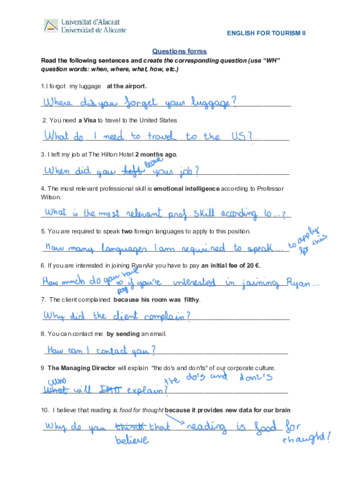 Universitat d'Alacant
Universidad de Alicante
ENGLISH FOR TOURISM II
Questions forms
Read the following sentences and create the corresponding question (use "WH"
question words: when, where, what, how, etc.)
1.I forgot my luggage at the airport.
Where did you forget your luggage?
2. You need a Visa to travel to the United States
What do I need to travel to the US?
3. I left my job at The Hilton Hotel 2 months ago.
leave
When did you left your job?
4. The most relevant professional skill is emotional intelligence according to Professor
Wilson.
What is the most relevant prof. skill acording to...?
5. You are required to speak two foreign languages to apply to this position.
How many languages I am required to speak... to apply for this
6. If you are interested in joining RyanAir you have to pay an initial fee of 20 €.
you have to pay
How much do if you're interested in joining Ryan...
7. The client complained because his room was filthy.
Why did the client complain?
8. You can contact me by sending an email.
How can I contact you?
9 The Managing Director will explain "the do's and don'ts" of our corporate culture.
Who the do's and dont's
What will explain?
10. I believe that reading is food for thought because it provides new data for our brain
Why do you think that reading is food for
believe thaught?